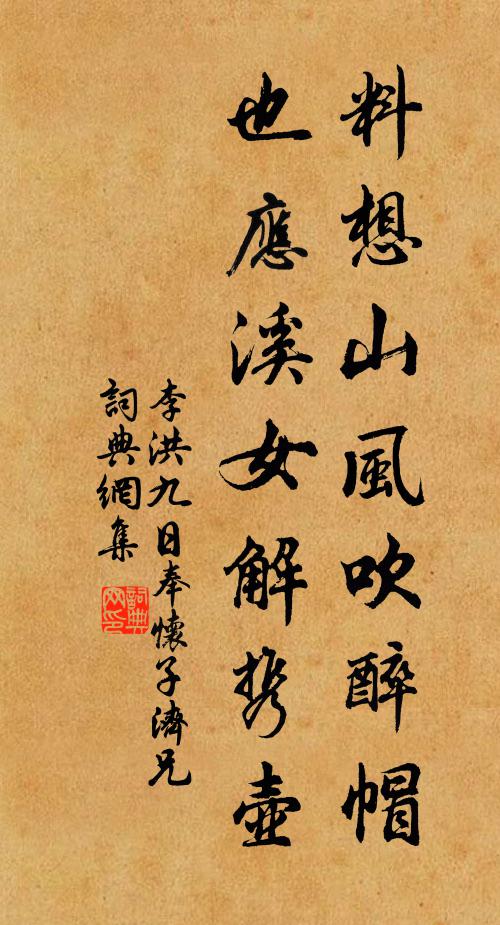 料想山風吹醉帽
也應溪女解携壺
李洪九日奉懷子濟兄
詞典網集
詞典
网印